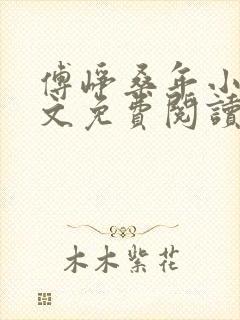 傅崢桑年小
文免費閱讀
木木紫花